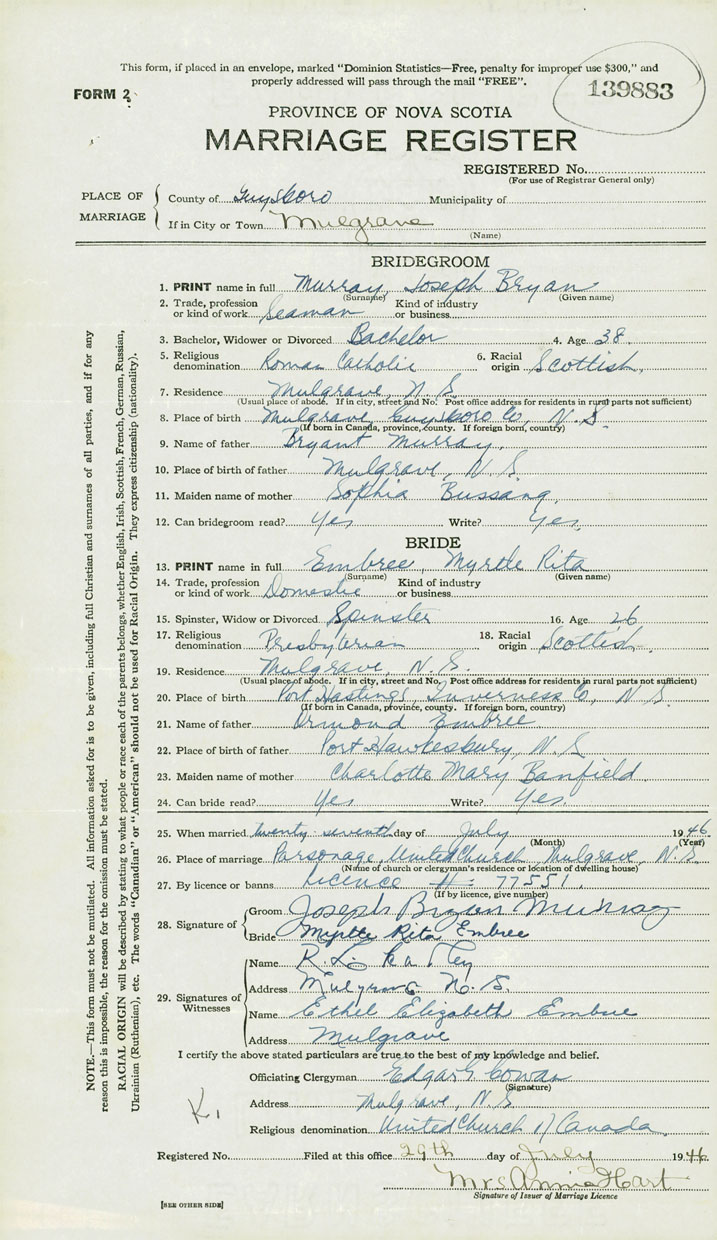 This form, if placed in an envelope, marked “Dominion Statistics—Free, penalty for improper use $300,” and
properly addressed will pass through the mail “FREE”.
FORM 2
139883
PROVINCE OF NOVA SCOTIA
MARRIAGE REGISTER
REGISTERED No.
(For use of Registrar General only)
PLACE OF MARRIAGE
County of Guysboro Municipality of
If in City or Town Mulgrave
(Name)
BRIDEGROOM
1. PRINT name in full Murray, Joseph Bryan
(Surname) (Given name)
2. Trade, profession or kind of work Seaman Kind of industry or business
3. Bachelor, Widower or Divorced Bachelor 4. Age 38
5. Religious denomination Roman Catholic 6. Racial origin Scottish
7. Residence Mulgrave, N.S.
(Usual place of abode. If in city, street and No. Post office address for residents in rural parts not sufficient)
8. Place of birth Mulgrave Guysboro Co, N.S.
(If born in Canada, province, county. If foreign born, country)
9. Name of father Bryant Murray
10. Place of birth of father Mulgrave, N.S.
11. Maiden name of mother Sophia Bussang
12. Can bridegroom read? Yes Write? Yes
BRIDE
13. PRINT name in full Embree, Myrtle Rita
(Surname) (Given name)
14. Trade, profession or kind of work Domestic Kind of industry or business
15. Spinster, Widow or Divorced Spinster 16. Age 26
17. Religious denomination Presbyterian 18. Racial origin Scottish
19. Residence Mulgrave, N.S.
(Usual place of abode. If in city, street and No. Post office address for residents in rural parts not sufficient)
20. Place of birth Port Hastings, Inverness Co, N.S
(If born in Canada, province, county. If foreign born, country)
21. Name of father Ormond Embree
22. Place of birth of father Port Hawkesbury, N.S
23. Maiden name of mother Charlotte Mary Banfield
24. Can bride read? Yes Write? Yes.
25. When married twenty-seventh day of July 1946
(Month) (Year)
26. Place of marriage Parsonage, United Church, Mulgrave, N.S.
(Name of church or clergyman's residence or location of dwelling house)
27. By licence or banns Licence #: 77551
(If by licence, give number)
28. Signature of
Groom Joseph Bryan Murray
Bride Myrtle Rita Embree
29. Signatures of Witnesses
Name R.
Address Mulgrave N.S.
Name Ethel Elizabeth Embree
Address Mulgrave
I certify the above stated particulars are true to the best of my knowledge and belief.
Officiating Clergyman Edgar G Cowan
(Signature)
Address Mulgrave, N.S
Religious denomination United Church of Canada
K,
Registered No. Filed at this office 29th day of July 1946
Mrs Annie Hart
Signature of Issuer of Marriage Licence
[SEE OTHER SIDE]
NOTE.—This form must not be mutilated. All information asked for is to be given, including full Christian and surnames of all parties, and if for any
reason this is impossible, the reason for the omission must be stated.
RACIAL ORIGIN will be described by stating to what people or race each of the parents belongs, whether English, Irish, Scottish, French, German, Russian,
Ukrainian (Ruthenian), etc. The words “Canadian” or “American” should not be used for Racial Origin. They express citizenship (nationality).